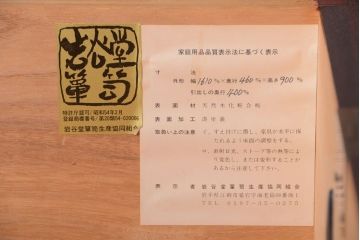 岩谷堂箪笥
特許庁認可/昭和54年2月
岩谷堂箪笥生産協同組合
家庭用品品質表示法に基づく表示
寸法
外形 幅1610%×奥行460%×高さ900%
引出しの奥行400%
表面材 天然木化粧合板
表面加工 漆塗装
取扱い上の注意 イ、すえ付けに際し、家具が水平に保
たれるよう床面の調整をする。
ロ、直射日光、ストーブ等の熱等によ
り変色し、または変形することがあ
るから注意して下さい。
表示者 岩谷堂箪笥生産協同組合